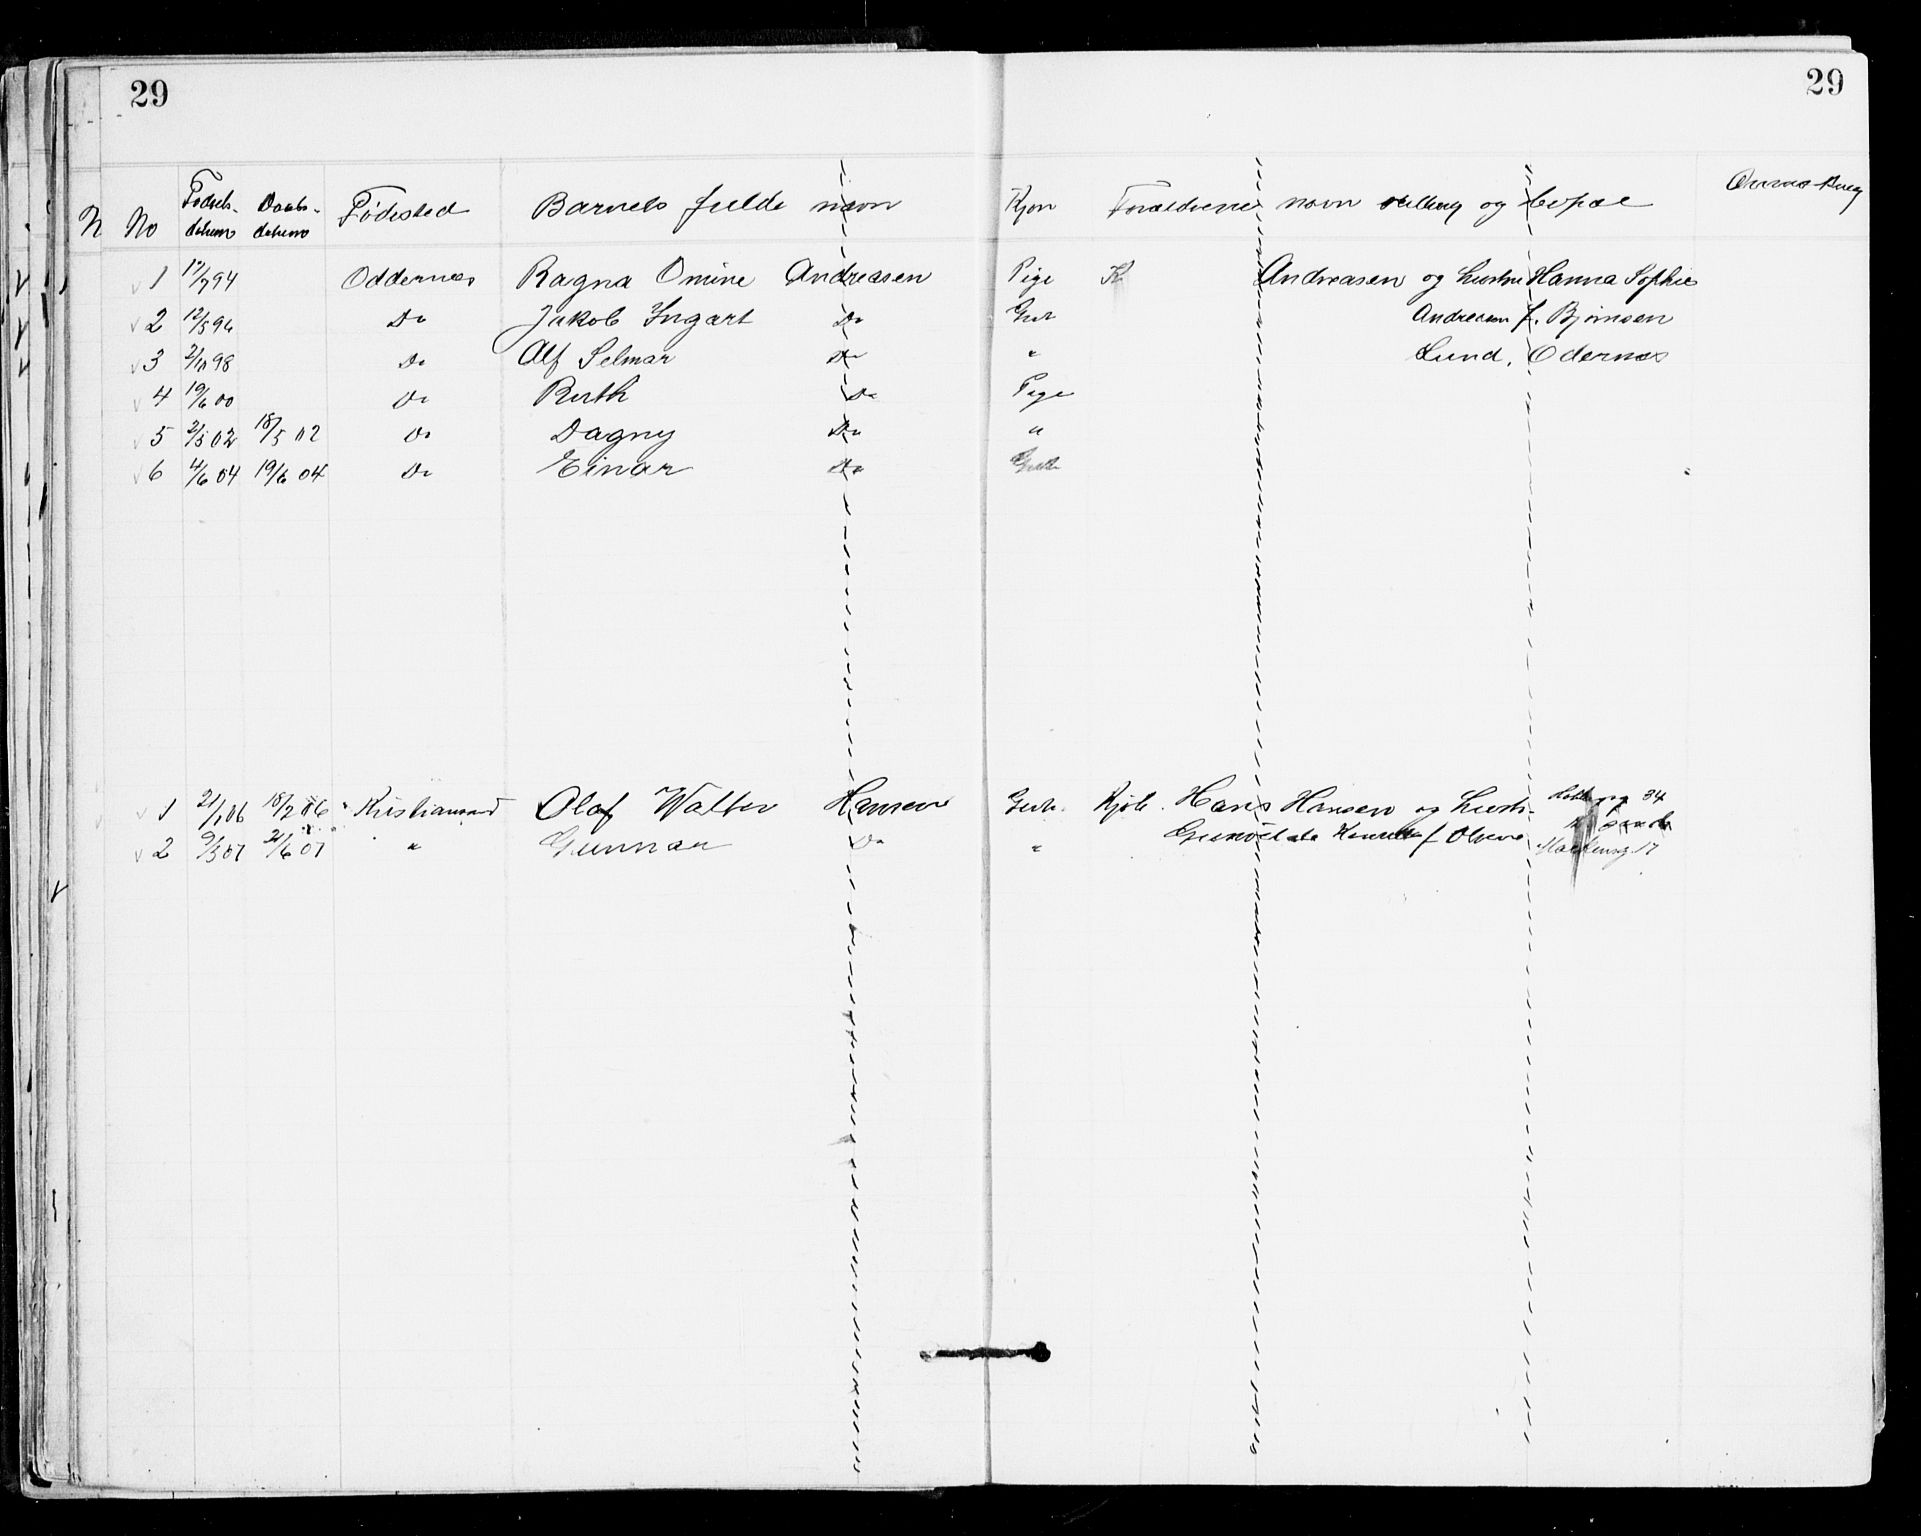 29 29
N No Fødsels- datum Daabs- datum Fødested Barnets fulde navn Kjøn Forældrenes navn stilling og bopæl
1 12/7 94 Oddernes Ragna Omine Andreasen Pige K Andreasen og hustru Hanna Sophie
2 12/5 96 Do Jakob Ingart Do Gut Andreasen f. Bjørnsen
3 2/10 98 Do Alf Selmar Do " Lund, Odernes
4 19/6 00 Do Ruth Do Pige
5 2/5 02 18/5 02 Do Dagny Do "
6 4/6 04 19/6 04 Do Einar Do Gut
1 21/1 06 18/2 06 Kristiansand Olaf Walter Hansen Gut. Kjøb. Hans Hansen og hustr. 34
2 9/5 07 21/6 07 " Gunnar Do " f Olsen 17